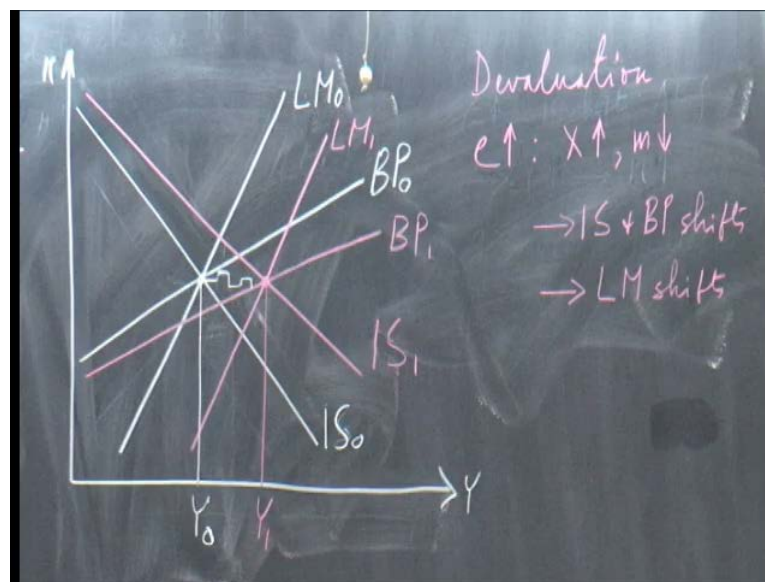 r
LM₀
LM₁
BP₀
BP₁
IS₁
IS₀
Y₀
Y₁
Y
Devaluation
e↑: X↑, m↓
→ IS + BP shifts
→ LM shifts